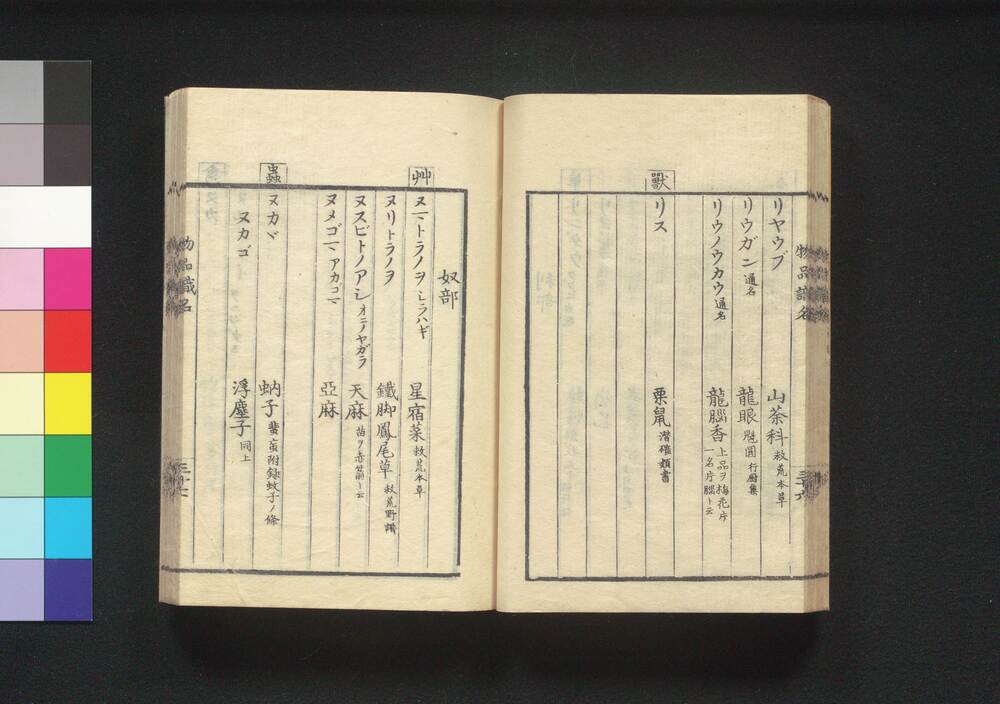 物品識名
三十六
リヤウブ 山茶科 救荒本草
リウガン 通名 龍眼 行厨集
リウノウカウ 通名 龍腦香 上品ヲ梅花片
一名片腦ト云
獸
リス 栗鼠 潜確類書
奴部
艸
ヌマトラノヲ シラハギ 星宿菜 救荒本草
ヌリトラノヲ 鐵脚鳳尾草 救荒野譜
ヌスビトノアシ オニノヤガラ 天麻 苗ヲ赤箭ト云
ヌメゴマ アカゴマ 亞麻
蟲
ヌカヾ 蚋子 蜚䖟附録蚊子ノ條
ヌカゴ 浮塵子 同上
物品識名
三十七